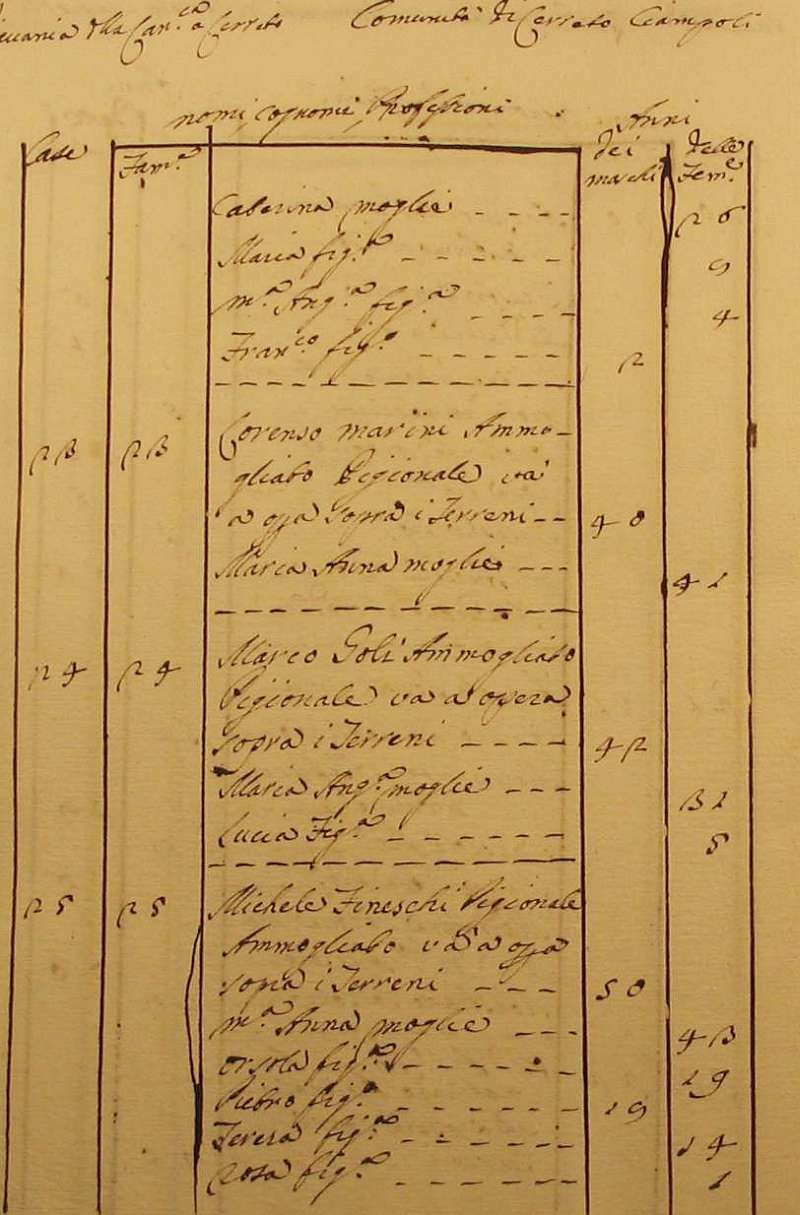 Comunità di Cerreto Ciampoli
della Can.ca Cerreto
nomi, cognomi, Professioni Anni
Case Fam.e dei maschi delle Fem.e
Caterina moglie - - - - 26
Maria fig.a - - - - - - 9
M.a Ang.a fig.a - - - - 4
Fran.co fig.o - - - - - 2
23 23 Lorenso Marini Ammo-
gliato Pigionale và
a opa sopra i Terreni - - 40
Maria Anna moglie - - - 41
24 24 Marco Goli Ammogliato
Pigionale va a opera
sopra i Terreni - - - - 42
Maria Ang.a moglie - - - 31
Lucia Fig.a - - - - - - - 5
25 25 Michele Fineschi Pigionale
Ammogliato và a opa
sopra i Terreni - - - 50
M.a Anna moglie - - - 43
Orsola fig.a - - - - - - 19
Pietro fig.o - - - - - - 19
Teresa fig.a - - - - - - 14
Rosa fig.a - - - - - - 1